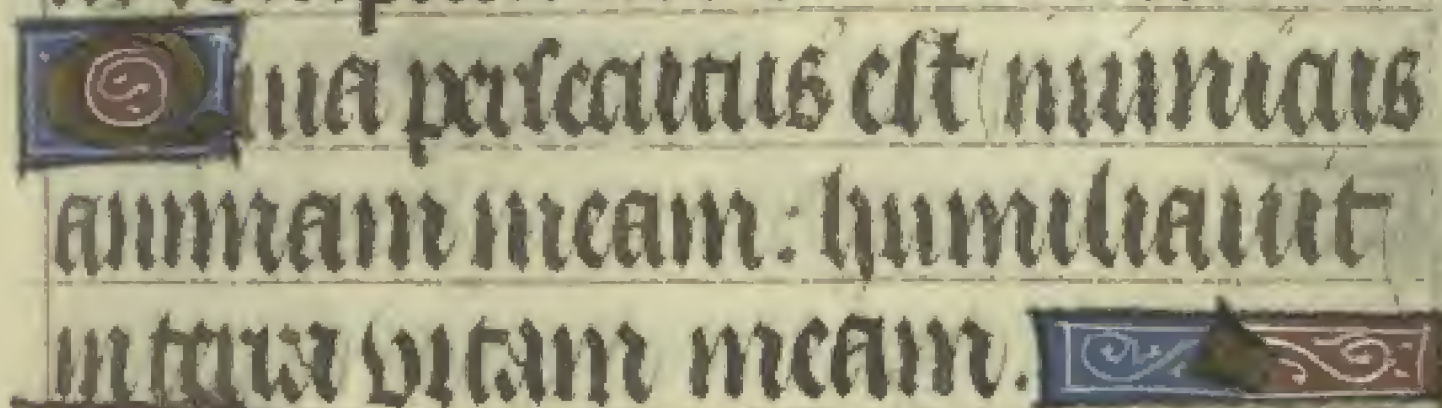 Quia persecutus est inimicus
animam meam: humiliauit
in terra vitam meam.